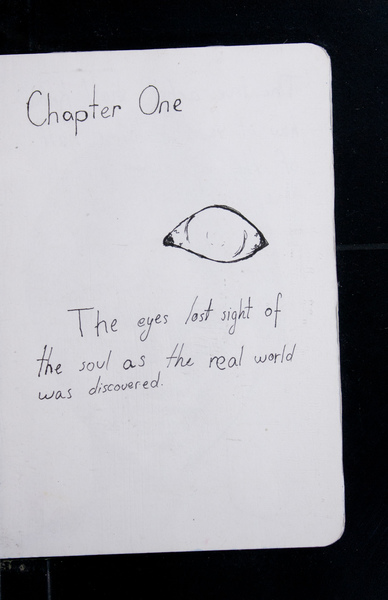 Chapter One
The eyes lost sight of
the soul as the real world
was discovered.